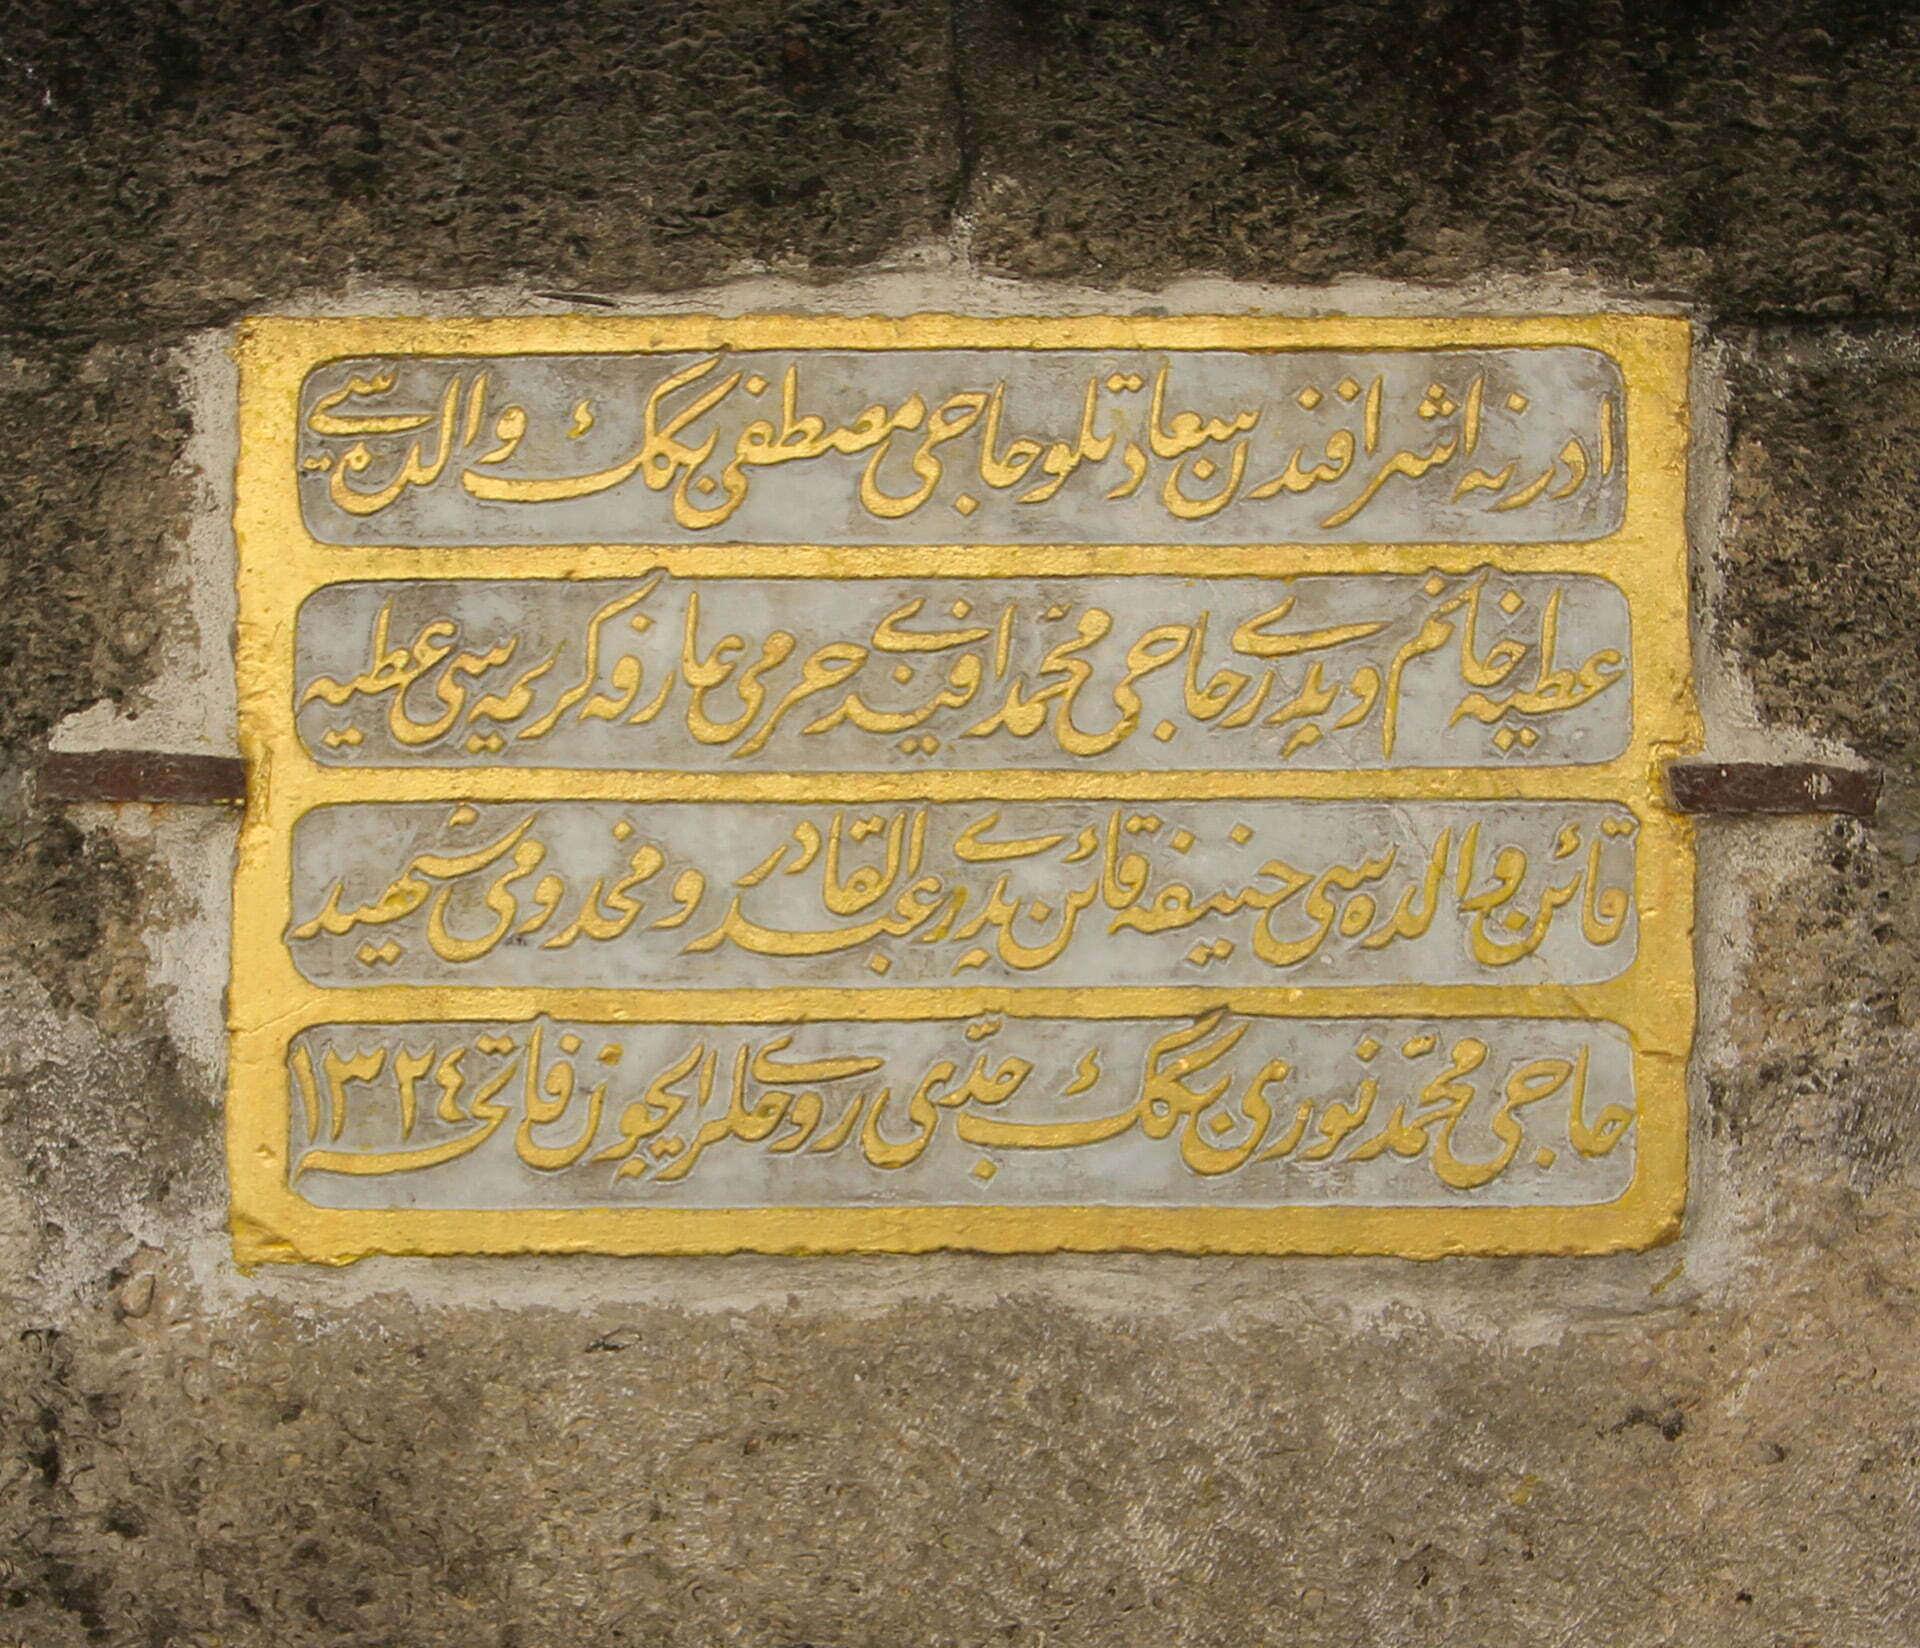 ادرنه اشرافندن سعادتلو حاجی مصطفی بكك والده سی
عطیه خانم و پدری حاجی محمد افندی حرمی عارفه كریمه سی عطیه
قائن والده سی حنیفه قائن پدری عبدالقادر و مخدومی شهید
حاجی محمد نوری بكك جدی روحلری ایچون فاتحه ١٣٢٤